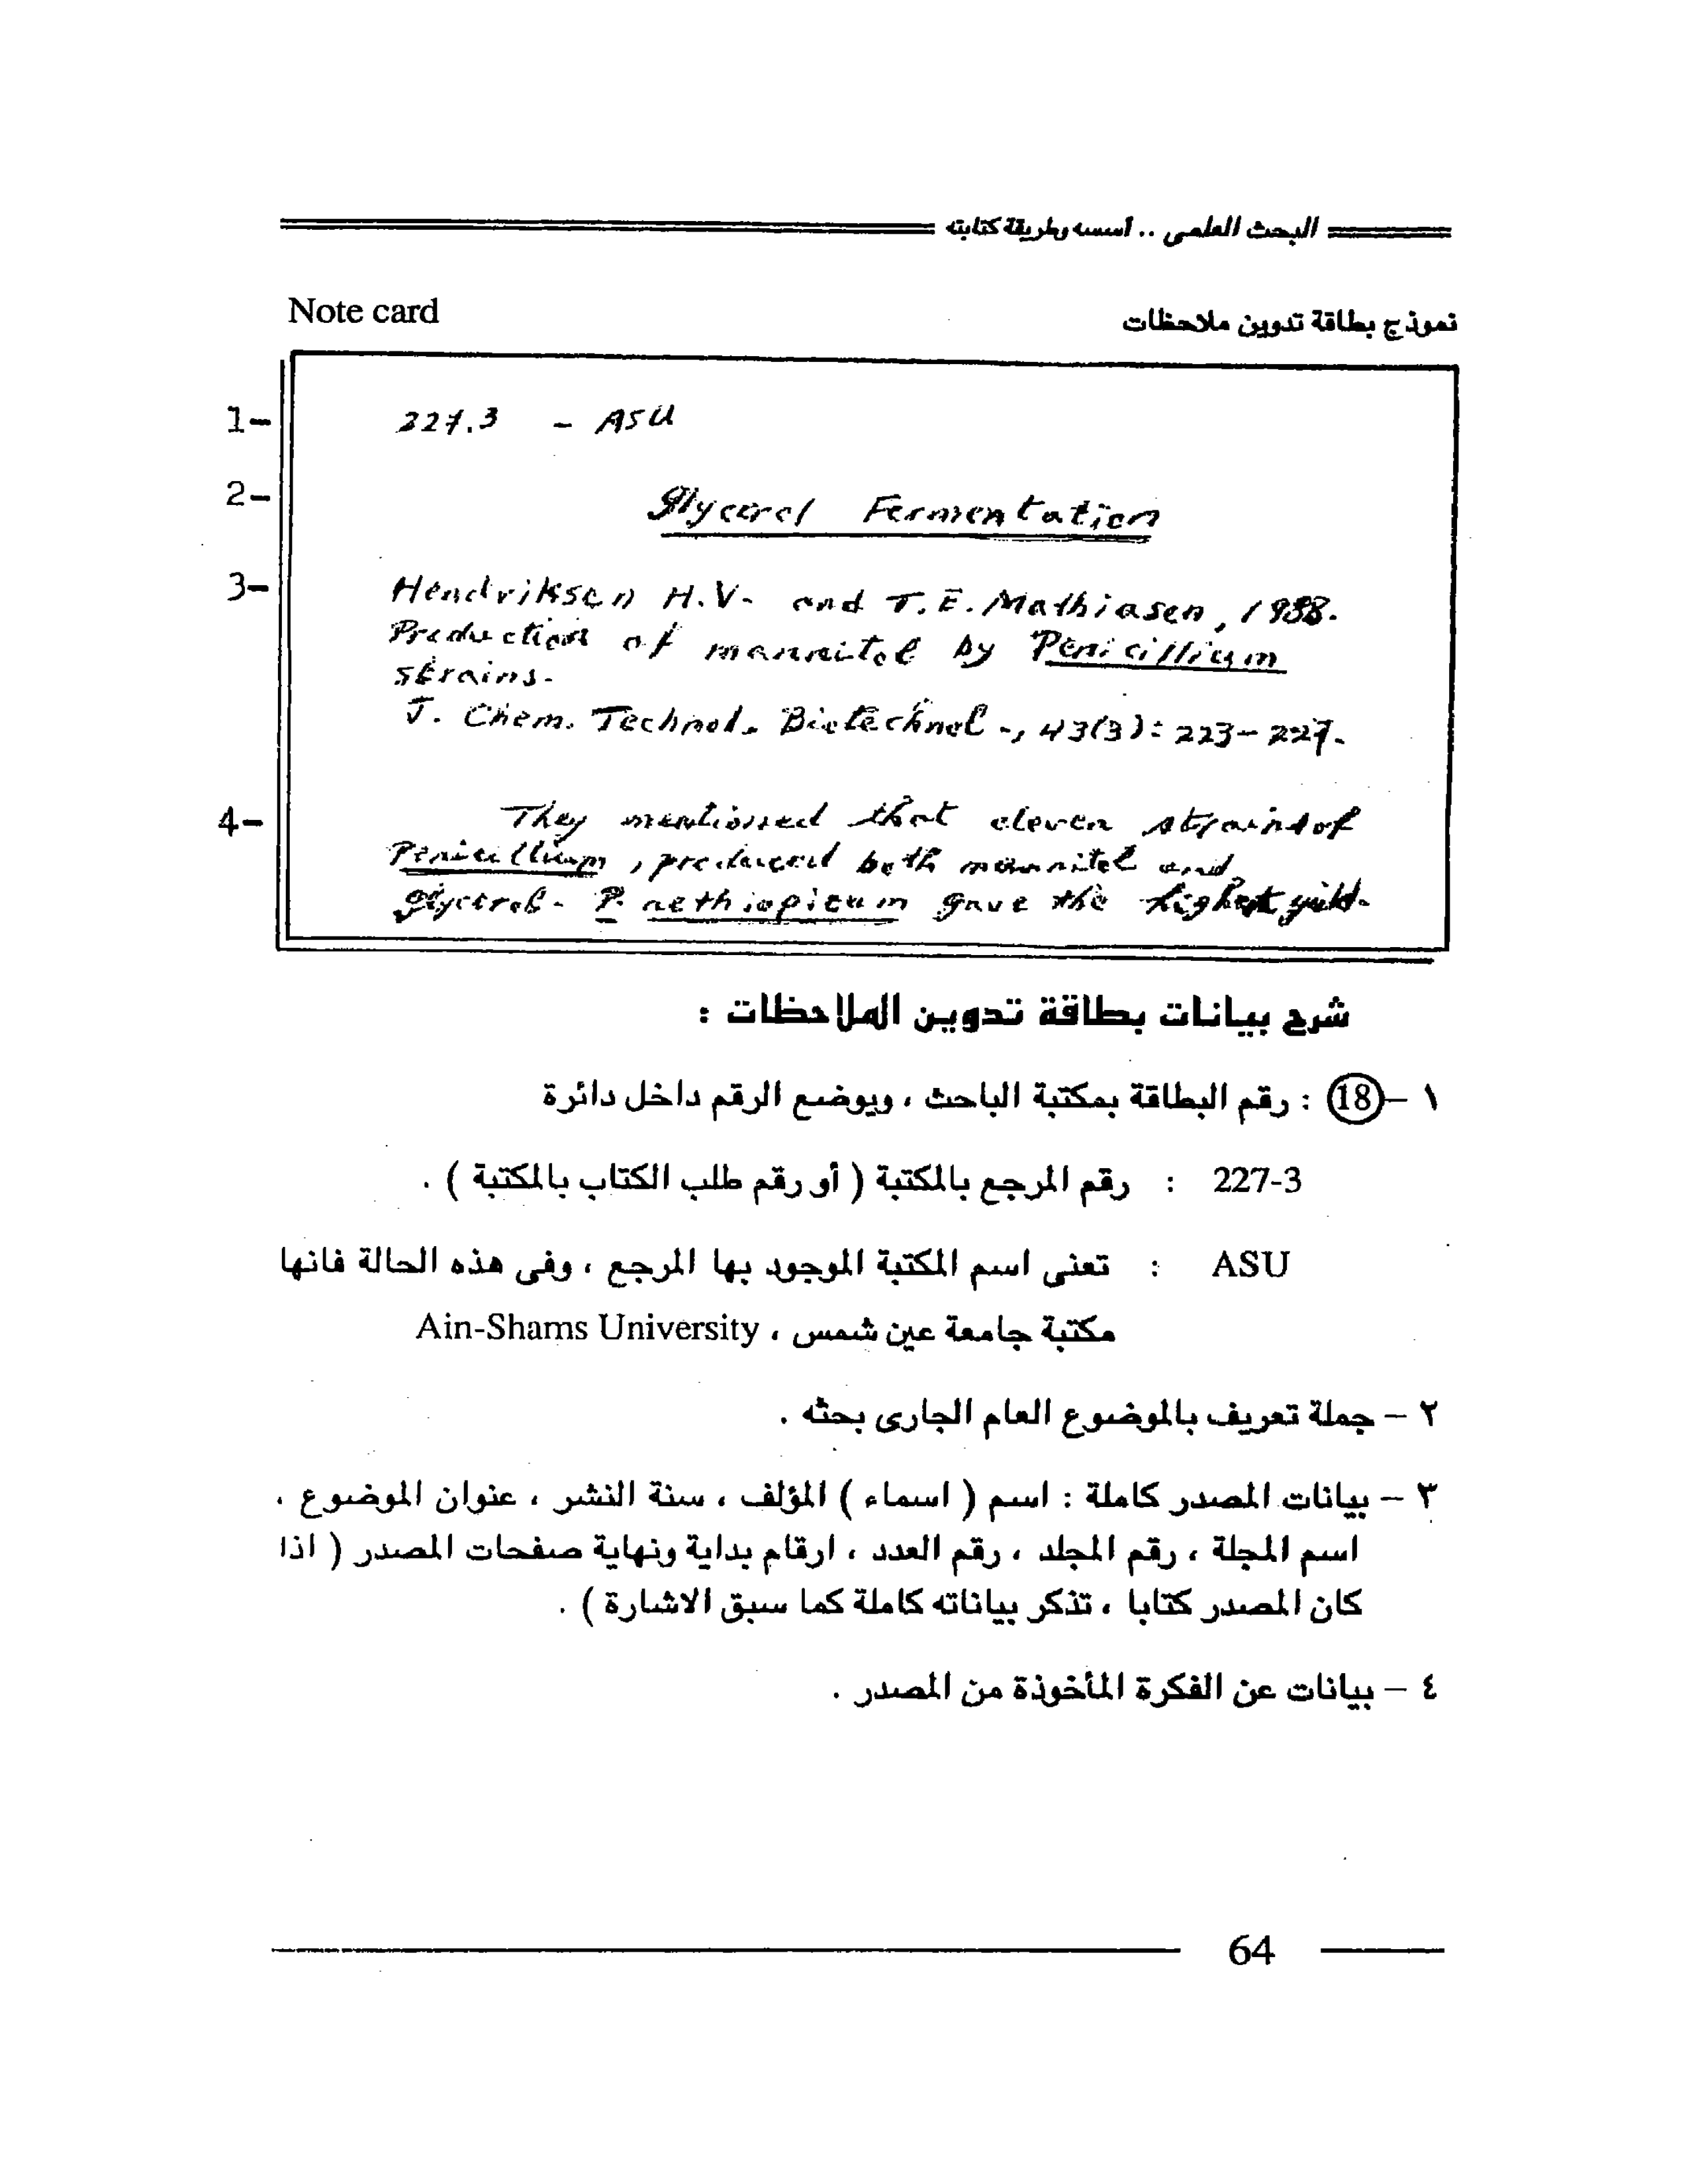 البحث العلمى .. أسسه وطريقة كتابته
Note card
نموذج بطاقة تدوين ملاحظات
1-
227.3 - ASU
2-
Glycerol Fermentation
3-
Hendriksen H.V. and T.E. Mathiasen, 1988.
Production of mannitol by Penicillium
strains.
J. Chem. Technol. Biotechnol., 43(3): 223-227.
4-
They mentioned that eleven strains of
Penicillium, produced both mannitol and
glycerol. P. aethiopicum gave the highest yield.
شرح بيانات بطاقة تدوين الملاحظات :
١ - 18 : رقم البطاقة بمكتبة الباحث ، ويوضع الرقم داخل دائرة
227-3 : رقم المرجع بالمكتبة ( أو رقم طلب الكتاب بالمكتبة ) .
ASU : تعنى اسم المكتبة الموجود بها المرجع ، وفى هذه الحالة فانها
مكتبة جامعة عين شمس ، Ain-Shams University
٢ - جملة تعريف بالموضوع العام الجارى بحثه .
٣ - بيانات المصدر كاملة : اسم ( اسماء ) المؤلف ، سنة النشر ، عنوان الموضوع ،
اسم المجلة ، رقم المجلد ، رقم العدد ، ارقام بداية ونهاية صفحات المصدر ( اذا
كان المصدر كتابا ، تذكر بياناته كاملة كما سبق الاشارة ) .
٤ - بيانات عن الفكرة المأخوذة من المصدر .
64